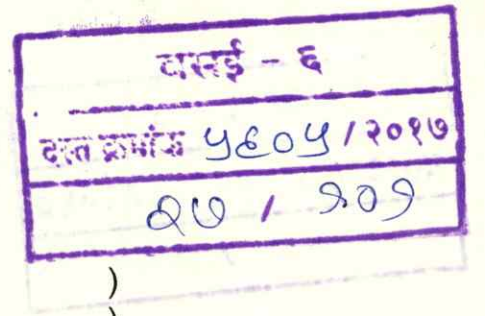 वसई - ६
दस्त क्रमांक ५६०५ / २०१७
२७ / १०१
)
)